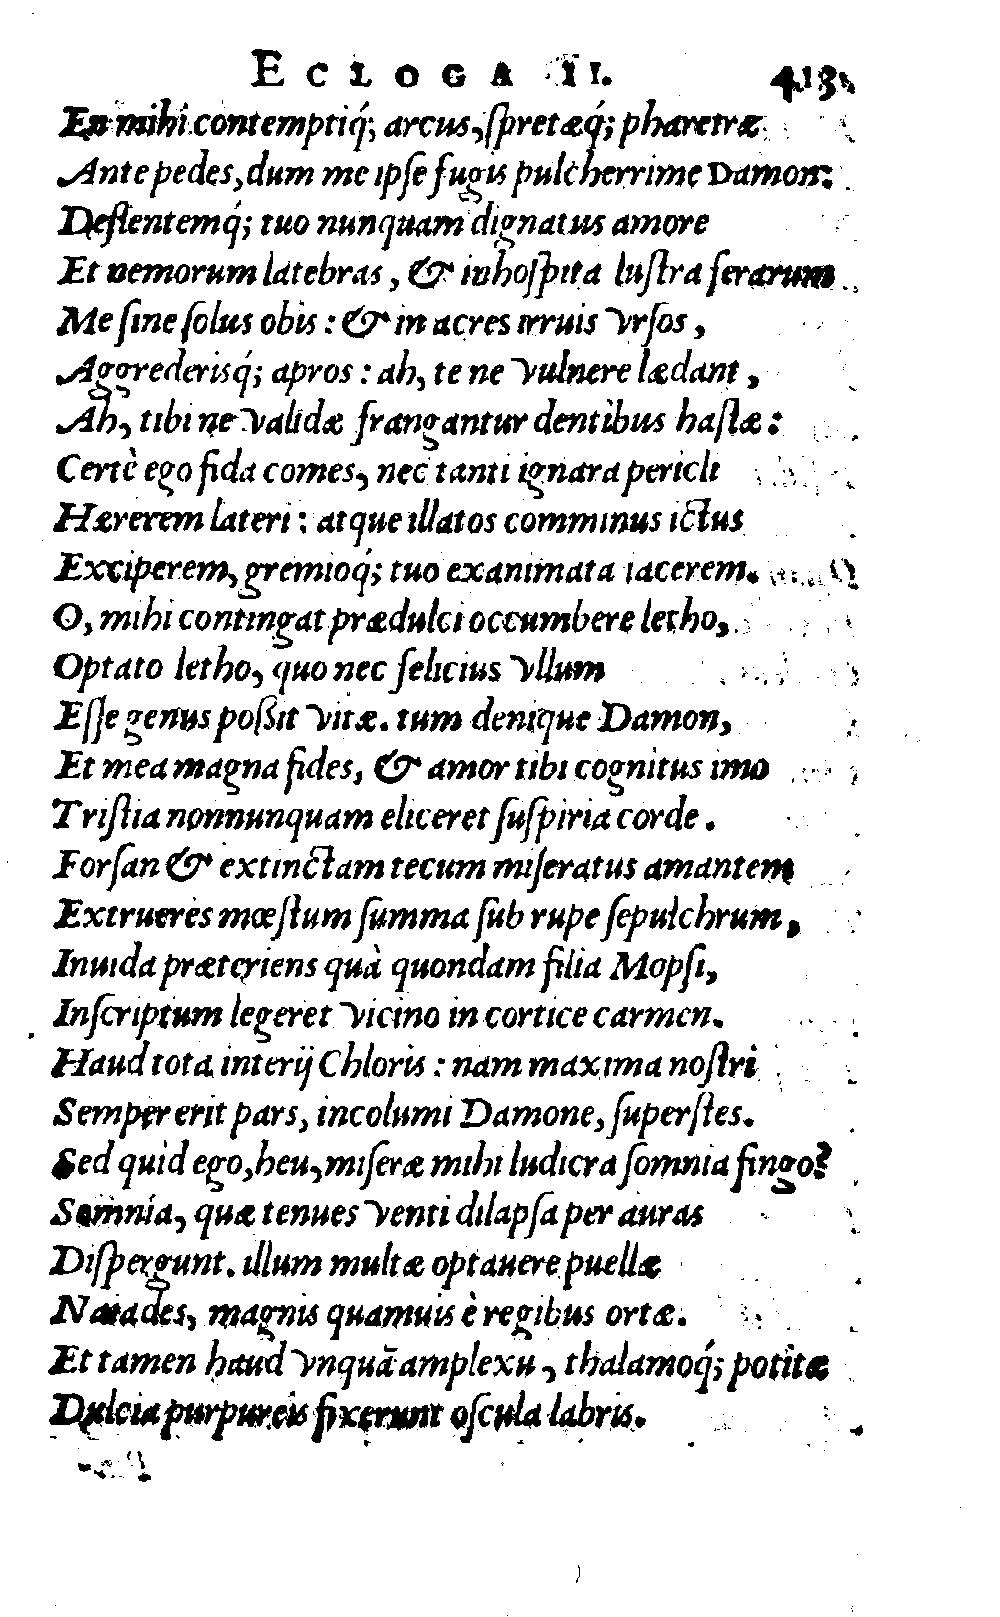 ECLOGA II. 413.
En mihi contemptiq́; arcus, ſpretæq́; pharetræ
Ante pedes, dum me ipſe fugis pulcherrime Damon:
Deflentemq́; tuo nunquam dignatus amore
Et nemorum latebras, & inhoſpita luſtra ferarum
Me ſine ſolus obis: & in acres irruis vrſos,
Aggrederisq́; apros: ah, te ne vulnere lædant,
Ah, tibi ne validæ frangantur dentibus haſtæ:
Certè ego fida comes, nec tanti ignara pericli
Hærerem lateri: atque illatos comminus ictus
Exciperem, gremioq́; tuo exanimata iacerem.
O, mihi contingat prædulci occumbere letho,
Optato letho, quo nec felicius vllum
Eſſe genus poßit vitæ. tum denique Damon,
Et mea magna fides, & amor tibi cognitus imo
Triſtia nonnunquam eliceret ſuſpiria corde.
Forſan & extinctam tecum miſeratus amantem
Extrueres mœſtum ſumma ſub rupe ſepulchrum,
Inuida præteriens quà quondam filia Mopſi,
Inſcriptum legeret vicino in cortice carmen.
Haud tota interij Chloris: nam maxima noſtri
Semper erit pars, incolumi Damone, ſuperſtes.
Sed quid ego, heu, miſeræ mihi ludicra ſomnia fingo?
Somnia, quæ tenues venti dilapſa per auras
Diſpergunt. illum multæ optauere puellæ
Naiades, magnis quamuis è regibus ortæ.
Et tamen haud vnquā amplexu, thalamoq́; potitæ
Dulcia purpureis fixerunt oſcula labris.